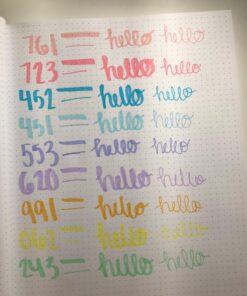 761 hello hello
723 hello hello
452 hello hello
451 hello hello
553 hello hello
620 hello hello
991 hello hello
062 hello hello
243 hello hello